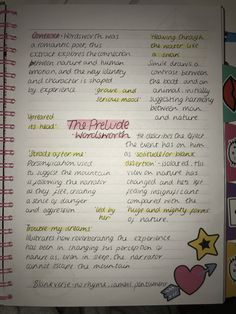 Context - Wordsworth was
a romantic poet, this
extract explores the connection
between nature and human
emotion, and the way identity
and character is shaped
by experience.
'grave and
serious mood'
'Heaving through
the water like
a swan'
Simile draws a
contrast between
the boat and an
animal, initially
suggesting harmony
between man
and nature.
'Upreared
its head'
The Prelude
- Wordsworth
'Strode after me'
Personification used
to suggest the mountain
is following the narrator
as they flee, creating
a sense of danger
and aggression
'led by
her'
He describes the effect
the event has on him
as 'solitude/or blank
desertion' - isolated. His
view on nature has
changed and he's left
feeling insignificant
compared with the
'huge and mighty forms'
of nature.
'Trouble my dreams'
Illustrates how overbearing the experience
has been in changing his perception of
nature as, even in sleep, the narrator
cannot escape the mountain
Blank verse - no rhyme, iambic pentameter